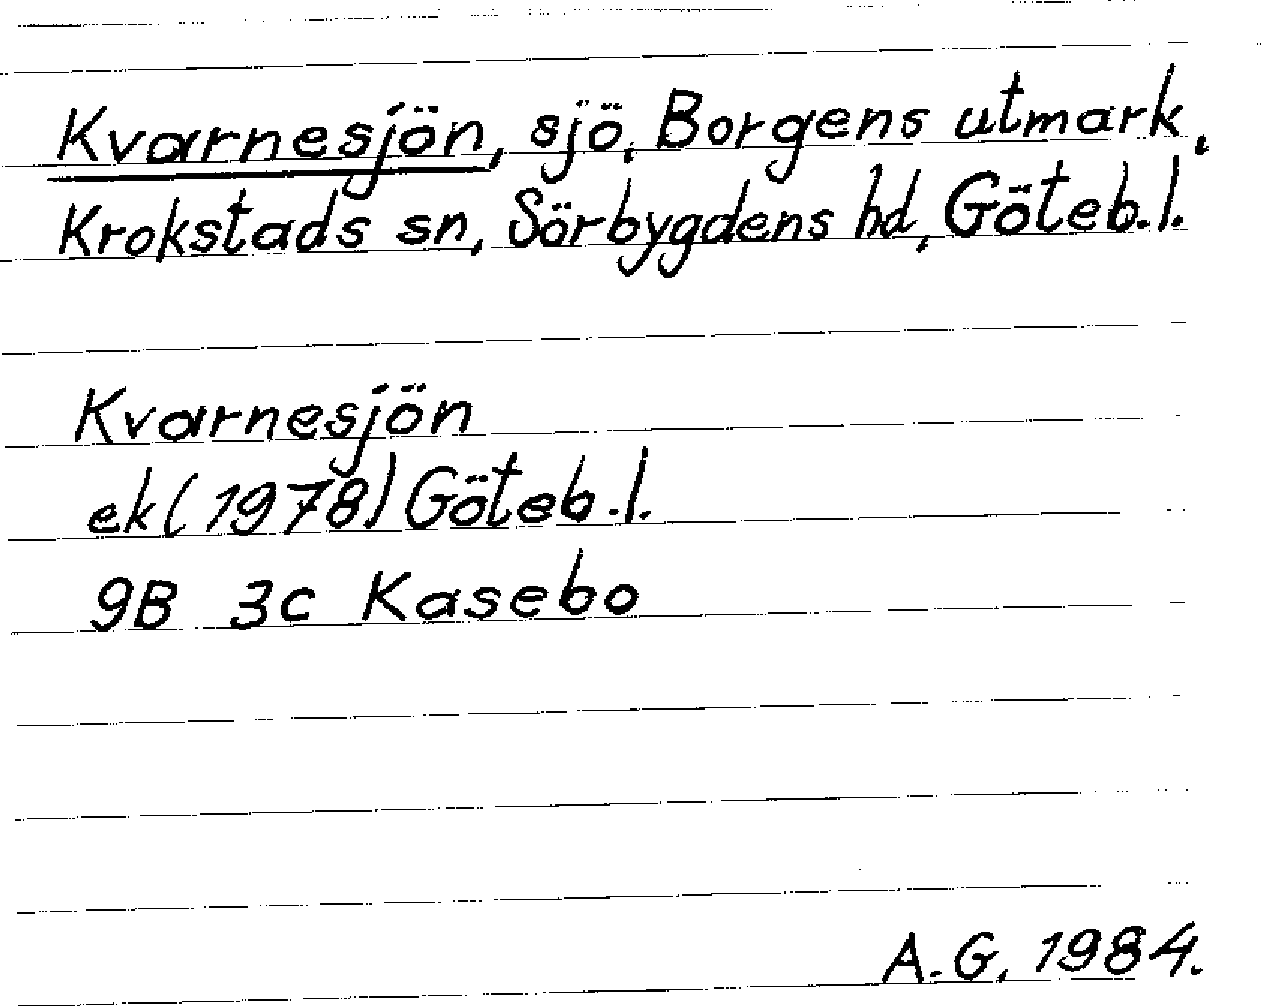 Kvarnesjön, sjö, Borgens utmark,
Krokstads sn, Sörbygdens hd, Göteb.l.
Kvarnesjön
ek (1978) Göteb.l.
9B 3c Kasebo
A.G. 1984.